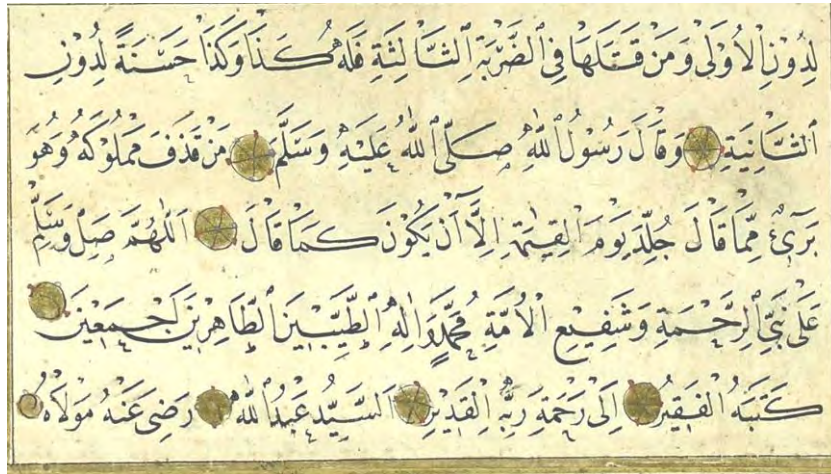 لِدُوْنِ الْاُوْلٰى وَمَنْ قَتَلَهَا فِي الضَّرْبَةِ الثَّالِثَةِ فَلَهُ كَذَا وَكَذَا حَسَنَةً لِدُوْنِ
الثَّانِيَةِ وَقَالَ رَسُوْلُ اللّٰهِ صَلَّى اللّٰهُ عَلَيْهِ وَسَلَّمَ مَنْ قَذَفَ مَمْلُوْكَهُ وَهُوَ
بَرِيْءٌ مِمَّا قَالَ جُلِّدَ يَوْمَ الْقِيٰمَةِ اِلَّا اَنْ يَكُوْنَ كَمَا قَالَ اَللّٰهُمَّ صَلِّ وَسَلِّمْ
عَلٰى نَبِيِّ الرَّحْمَةِ وَشَفِيْعِ الْاُمَّةِ مُحَمَّدٍ وَاٰلِهِ الطَّيِّبِيْنَ الطَّاهِرِيْنَ اَجْمَعِيْنَ
كَتَبَهُ الْفَقِيْرُ اِلٰى رَحْمَةِ رَبِّهِ الْقَدِيْرِ اَلسَّيِّدُ عَبْدُ اللّٰهِ رَضِيَ عَنْهُ مَوْلَاهُ